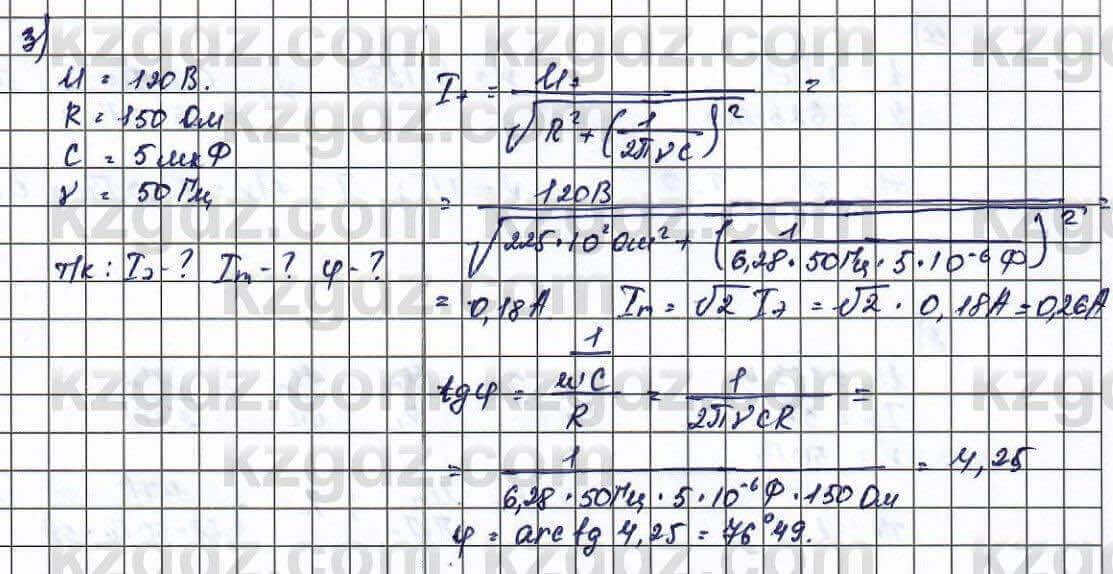 3)
U = 120 В.
R = 150 Ом
C = 5 мкФ
γ = 50 Гц
т/к: Iэ - ? Im - ? φ - ?
Iэ = Uэ / √(R² + (1 / 2πγC)²) =
= 120В / √(225·10² Ом² + (1 / 6,28·50Гц·5·10⁻⁶Ф)²) =
= 0,18А Im = √2 Iэ = √2 · 0,18А = 0,26А
tgφ = (1 / ωC) / R = 1 / 2πγCR =
= 1 / 6,28·50Гц·5·10⁻⁶Ф·150Ом = 4,25
φ = arctg 4,25 = 76°49.
kzgdz.com kzgdz.com kzgdz.com
kzgdz.com kzgdz.com
kzgdz.com kzgdz.com kzgdz.com
kzgdz.com kzgdz.com
kzgdz.com kzgdz.com kzgdz.com
kzgdz.com kzgdz.com
kzgdz.com kzgdz.com kzgdz.com